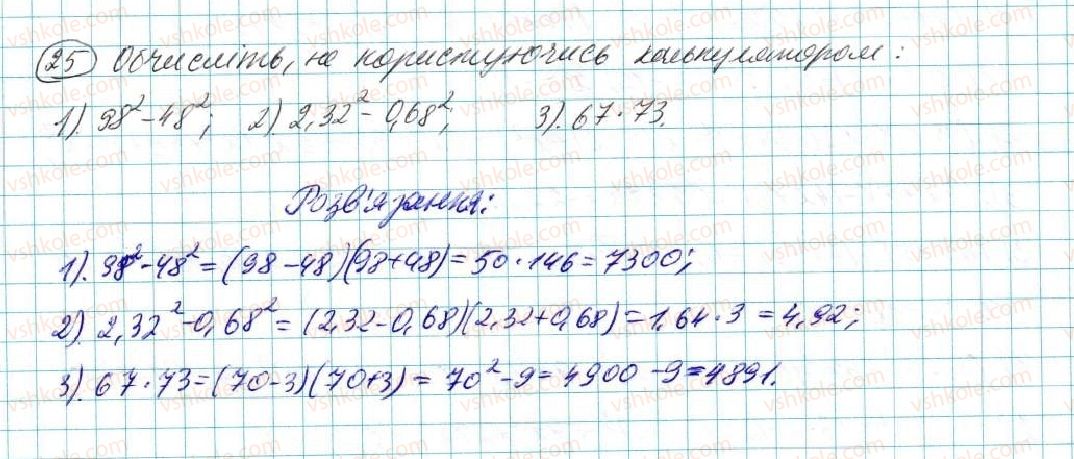 25 Обчисліть, не користуючись калькулятором:
1). 98² - 48²; 2) 2,32² - 0,68²; 3). 67 · 73.
Розв'язання:
1). 98² - 48² = (98 - 48)(98 + 48) = 50 · 146 = 7300;
2). 2,32² - 0,68² = (2,32 - 0,68)(2,32 + 0,68) = 1,64 · 3 = 4,92;
3). 67 · 73 = (70 - 3)(70 + 3) = 70² - 9 = 4900 - 9 = 4891.
vshkole.com